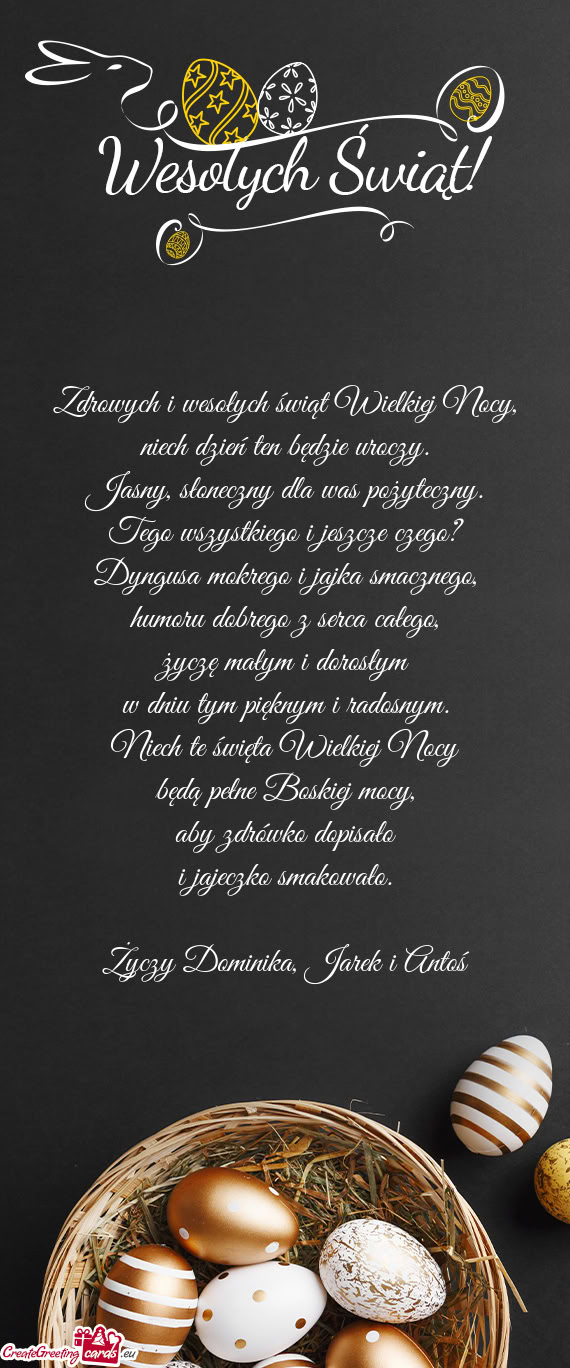 Wesołych Świąt!
Zdrowych i wesołych świąt Wielkiej Nocy,
niech dzień ten będzie uroczy.
Jasny, słoneczny dla was pożyteczny.
Tego wszystkiego i jeszcze czego?
Dyngusa mokrego i jajka smacznego,
humoru dobrego z serca całego,
życzę małym i dorosłym
w dniu tym pięknym i radosnym.
Niech te święta Wielkiej Nocy
będą pełne Boskiej mocy,
aby zdrówko dopisało
i jajeczko smakowało.
Życzy Dominika, Jarek i Antoś
CreateGreetingcards.eu